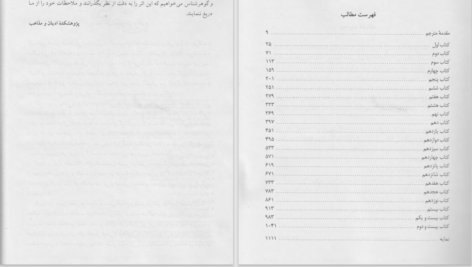 و گوهرشناس می‌خواهیم که این اثر را به دقت از نظر بگذرانند و ملاحظات خود را از ما
دریغ ننمایند.
پژوهشکدهٔ ادیان و مذاهب
فهرست مطالب
مقدمهٔ مترجم ۹
کتاب اول ۲۵
کتاب دوم ۷۱
کتاب سوم ۱۱۳
کتاب چهارم ۱۵۹
کتاب پنجم ۲۰۱
کتاب ششم ۲۵۱
کتاب هفتم
کتاب هشتم ۳۳۳
کتاب نهم
کتاب دهم ۳۹۷
کتاب یازدهم ۴۵۱
کتاب دوازدهم ۴۹۵
کتاب سیزدهم ۵۳۳
کتاب چهاردهم ۵۷۱
کتاب پانزدهم ۶۱۹
کتاب شانزدهم ۶۷۱
کتاب هفدهم ۷۳۳
کتاب هجدهم ۷۸۳
کتاب نوزدهم ۸۶۱
کتاب بیستم ۹۱۳
کتاب بیست و یکم ۹۸۳
کتاب بیست و دوم ۱۰۴۱
نمایه ۱۱۱۱